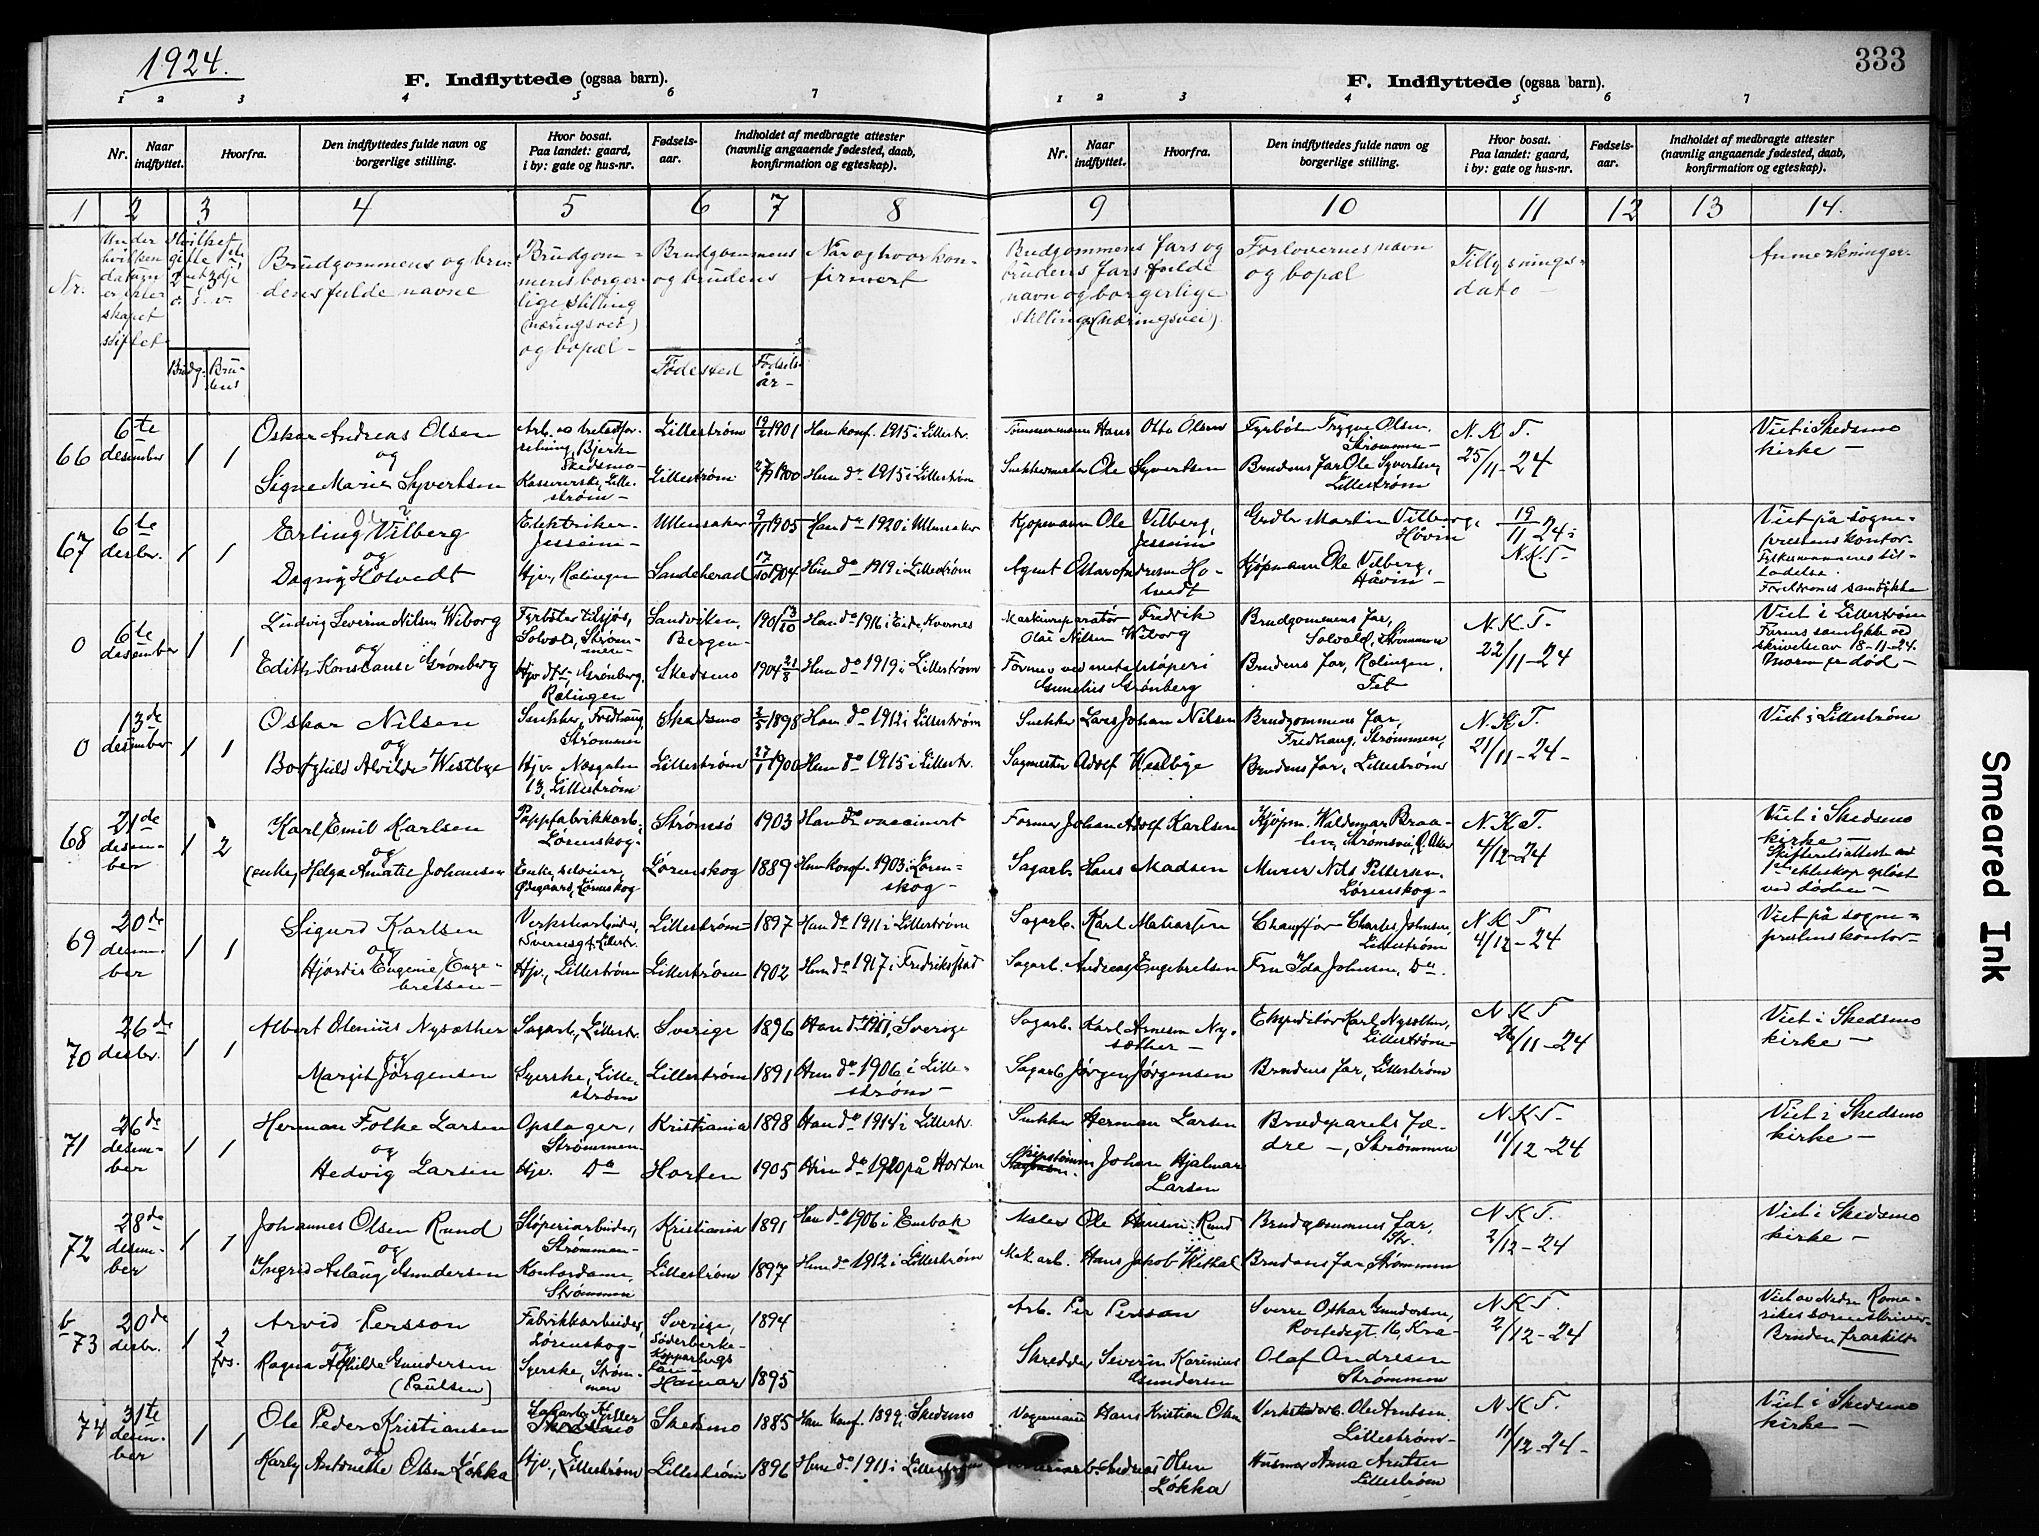 1924.
333
F. Indflyttede (ogsaa barn).
F. Indflyttede (ogsaa barn).
1 2 3 4 5 6 7
1 2 3 4 5 6 7
Nr.
Naar indflyttet.
Hvorfra.
Den indflyttedes fulde navn og
borgerlige stilling.
Hvor bosat.
Paa landet: gaard,
i by: gate og hus-nr.
Fødsels-
aar.
Indholdet af medbragte attester
(navnlig angaaende fødested, daab,
konfirmation og egteskap).
Nr.
Naar
indflyttet.
Hvorfra.
Den indflyttedes fulde navn og
borgerlige stilling.
Hvor bosat.
Paa landet: gaard,
i by: gate og hus-nr.
Fødsels-
aar.
Indholdet af medbragte attester
(navnlig angaaende fødested, daab,
konfirmation og egteskap).
1 2 3 4 5 6 7 8 9 10 11 12 13 14.
Nr.
Under
hvilken
datum
er ekte-
skapet
stiftet
Brudg.
Bru-
dens
Brudgommens og bru-
dens fulde navne
Brudgom-
mens borger-
lige stilling
(næringsvei)
og bopæl -
Brudgommens
og brudens
Fødested
Fødsels-
år -
Når og hvor kon-
firmert
Brudgommens fars og
brudens fars fulde
navn og borgerlige
stilling (næringsvei).
Forlovernes navn
og bopæl
Tillysnings-
dato -
Anmerkninger.
66
6te
desember
1 1
Oskar Andreas Olsen
og
Signe Marie Syvertsen
Bjerke
Skedsmo -
Lille-
strøm -
Lillestrøm
Lillestrøm
1901
1900
Han konf. 1915 i Lillestr.
Hun do 1915 i Lillestrøm
Tømmermann Hans Otto Olsen
Ole Syvertsen
Fyrbøt. Trygve Olsen,
Strømmen -
Brudens far Ole Syvertsen,
Lillestrøm
N. K. T.
25/11-24
Viet i Skedsmo
kirke -
67
6te
desbr.
1 1
Erling Vilberg
og
Dagny Holvedt
Elektriker
Jesseim -
Hjv., Rælingen
Ullensaker
Sandeherad
1905
1904
Han do 1920 i Ullensaker
Hun do 1919 i Lillestrøm
Kjøpmann Ole Vilberg,
Jesseim
Agent Andreas Ho-
lvedt
Martin Vilberg,
Hovin
Kjøpmann Ole Vilberg,
Håvin -
19/11 24
N.K.T.
Viet på sogne-
prestens kontor -
Fylkesmannens til-
ladelse.
Foreldrenes samtykke
0
6te
desember
1 1
Ludvig Severin Nilsen Wiborg
og
Edith Konstanse Grønberg
Fyrbøter tilsjøs,
Solvold, Strøm-
men
Rælingen
Sandviken,
Bergen -
Skedsmo
1901 13/10
1904 21/8
Han do 1916 i Eide, Kvernes
Hun do 1919 i Lillestrøm
Fredrik
Olai Nilsen Wiborg
Former ved metalstøperi
Gunelius Grønberg
Brudgommens far,
Solvold, Strømmen
Brudens far, Rælingen,
Fet
N. K. T.
22/11-24
Viet i Lillestrøm
Farens samtykke ved
skrivelse av 18-11-24.
Moren er død -
0
13de
desember
1 1
Oskar Nilsen
og
Borghild Alvilde Westbye
Snekker, Fredhaug,
Strømmen
Hjv. Næsgaten
13, Lillestrøm
Skedsmo
Lillestrøm
3/5 1898
27/1 1900
Han do 1912 i Lillestrøm
Hun do 1915 i Lillestr.
Snekker Lars Johan Nilsen
Sagmester Adolf Westbye
Brudgommens far,
Fredhaug, Strømmen,
Brudens far, Lillestrøm
N. K. T.
21/11-24-
Viet i Lillestrøm
68
21de
desem-
ber
1 2
Karl Emil Karlsen
og
(enke) Helga Amalie Johansen
Pappfabrikkarb.,
Lørenskog -
Ødegaard, Lørenskog
Strømsø
Lørenskog
1903
1889
Han do vaccinert
Hun konf. 1903 i Løren-
skog -
Former Johan Adolf Karlsen
Sagarb. Hans Madsen
Kjøpm. Waldemar Braa-
Murer Nils Pettersen,
Lørenskog -
N. K. T.
4/12-24
Viet i Skedsmo
kirke -
Skifteretsattest av
1ste ekteskap opløst
ved døden -
69
20de
desem-
ber
1 1
Sigurd Karlsen
og
Hjørdis Eugenie Enge-
bretsen -
Verkstarbeider,
Lillestr.
Hjv., Lillestrøm
Lillestrøm
Lillestrøm
1897
1902
Han do 1911 i Lillestrøm
Hun do 1917 i Fredriksstad
Sagarb. Karl Matiassen
Sagarb. Andreas Engebretsen
Chauffør Charles Johnsen,
Lillestrøm
Fru Ida Johnsen, Do.
N K T
4/12-24
Viet på sogne-
prestens kontor -
70
26de
desbr.
1 1
Albert Olenius Nysæther
og
Margit Jørgensen
Sagarb., Lillestr.
Syerske, Lille-
strøm
Sverige
Lillestrøm
1896
1891
Han do 1911, Sverige
Hun do 1906 i Lille-
strøm -
Sagarb. Karl Arnesen Ny-
sæther -
Sagarb. Jørgen Jørgensen
Ekspeditør Karl Nysæther,
Lillestrøm -
Brudens far, Lillestrøm
N K T
26/11-24
Viet i Skedsmo
kirke -
71
26de
desem-
ber
1 1
Herman Folke Larsen
og
Hedvig Larsen
Opslager,
Strømmen
Hjv. Do
Kristiania
Horten
1898
1905
Han do 1914 i Lillestr.
Hun do 1920 på Horten
Snekker Herman Larsen
Johan Hjalmar
Larsen
Brudeparets fæ-
dre -, Strømmen
N. K. T.
11/12-24
Viet i Skedsmo
kirke -
72
28de
desem-
ber
1 1
Johannes Olsen Rund
og
Ingrid Aslaug Gundersen
Støperiarbeider,
Strømmen -
Kontordame,
Strømmen
Kristiania
Lillestrøm
1891
1897
Han do 1906 i Enebak
Hun do 1912 i Lillestrøm
Maler Ole Hansen Rund
Mek arb. Hans Jakob
Brudgommens far,
Str.
Brudens far, Strømmen
N K T.
2/12-24
Viet i Skedsmo
kirke -
b
73
20de
desbr.
1 2
frs.
Arvid Persson
og
Ragna Alfhilde Gundersen
(Paulsen)
Fabrikkarbeider,
Lørenskog -
Syerske, Strøm-
men
Sverige,
Söderberke -
Kopparbergs
län
Hamar
1894
1895
Arb. Per Persson
Skredder Severin Karinius
Gundersen
Sverre Oskar Gundersen,
16, Kra-
Olaf Andresen
Strømmen
N K T.
2/12-24
Viet av Nedre Rome-
rikes sorenskriver
Bruden fraskilt
74
31te
desem-
ber
1 1
Ole Peder Kristiansen
og
Karly Antonette Olsen Løkka
Skedsmo
Hjv., Lillestrøm
Skedsmo
Lillestrøm
1885
1896
Han konf. 1899 i Skedsmo
Hun do 1911 i Lillestrøm
Hans Kristian Olsen
Andreas Olsen
Løkka
Verkstedarb. Ole Arntsen,
Lillestrøm -
Husmor Anna Arntsen
Lillestrøm
N K T.
11/12-24-
Viet i Skedsmo
kirke -
Smeared Ink